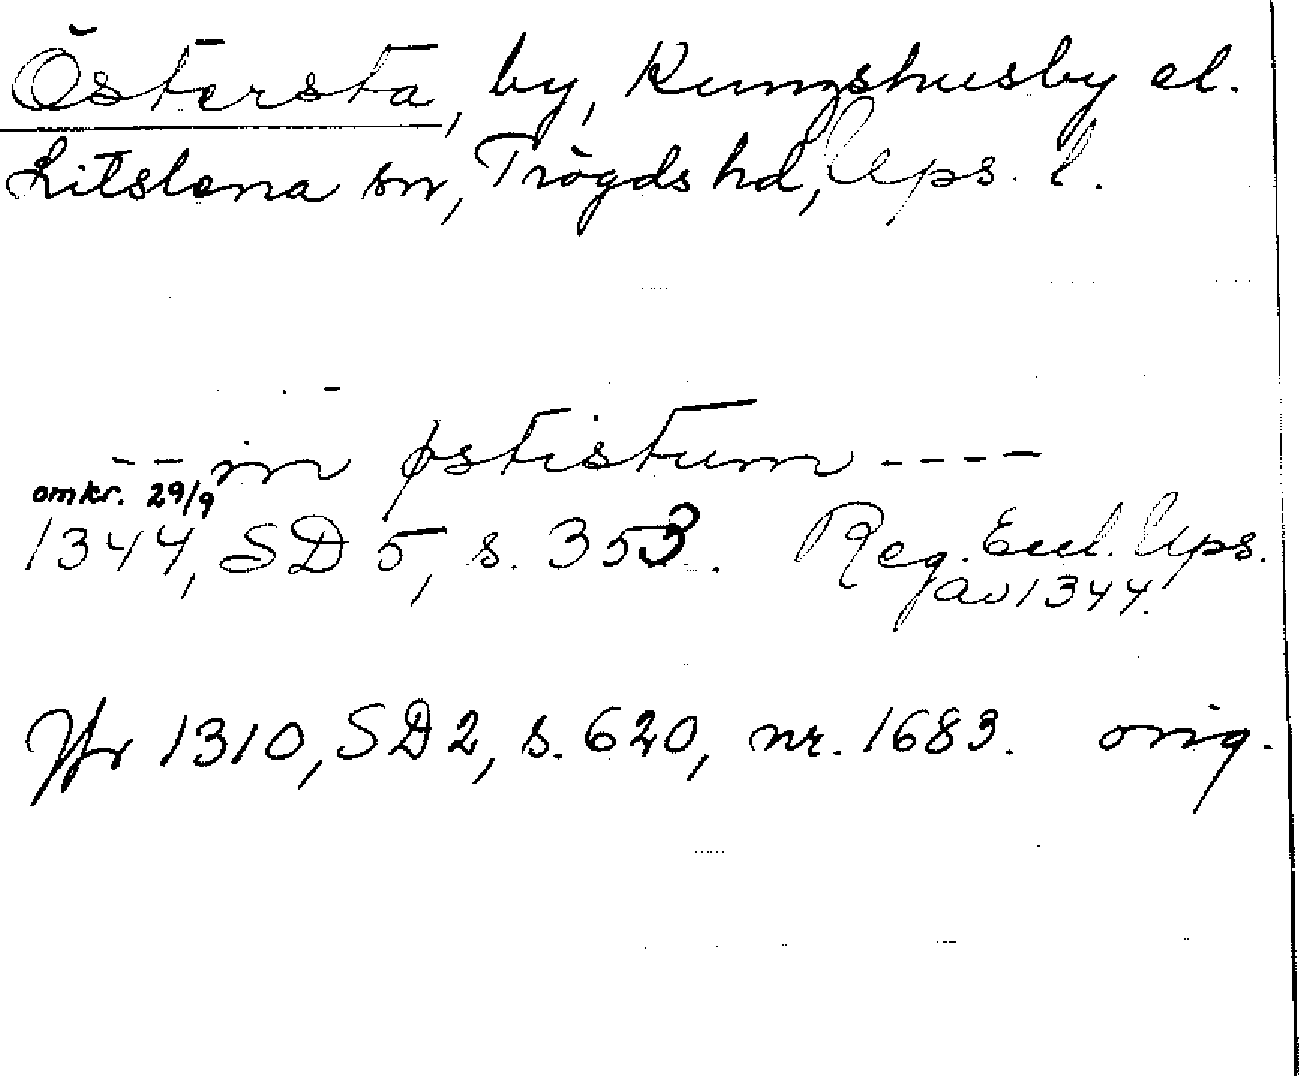 Östersta, by, Kungshusby el.
Litslena sn, Trögds hd, Ups. l.
-- in østistum ----
omkr. 29/9
1344, SD 5, s. 353. Reg. Eccl. Ups.
av 1344.
Jfr 1310, SD 2, s. 620, nr. 1683. orig.